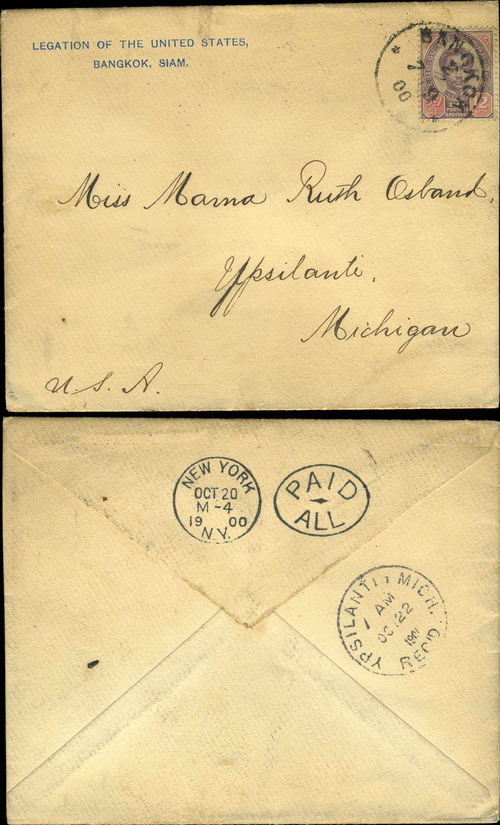 LEGATION OF THE UNITED STATES,
BANGKOK, SIAM.
BANGKOK
00
12
Miss Mama Ruth Osband,
Ypsilanti,
Michigan
U.S.A.
NEW YORK
OCT 20
M-4
19 00
N.Y.
PAID
ALL
YPSILANTI, MICH.
AM
OC 22
REC'D